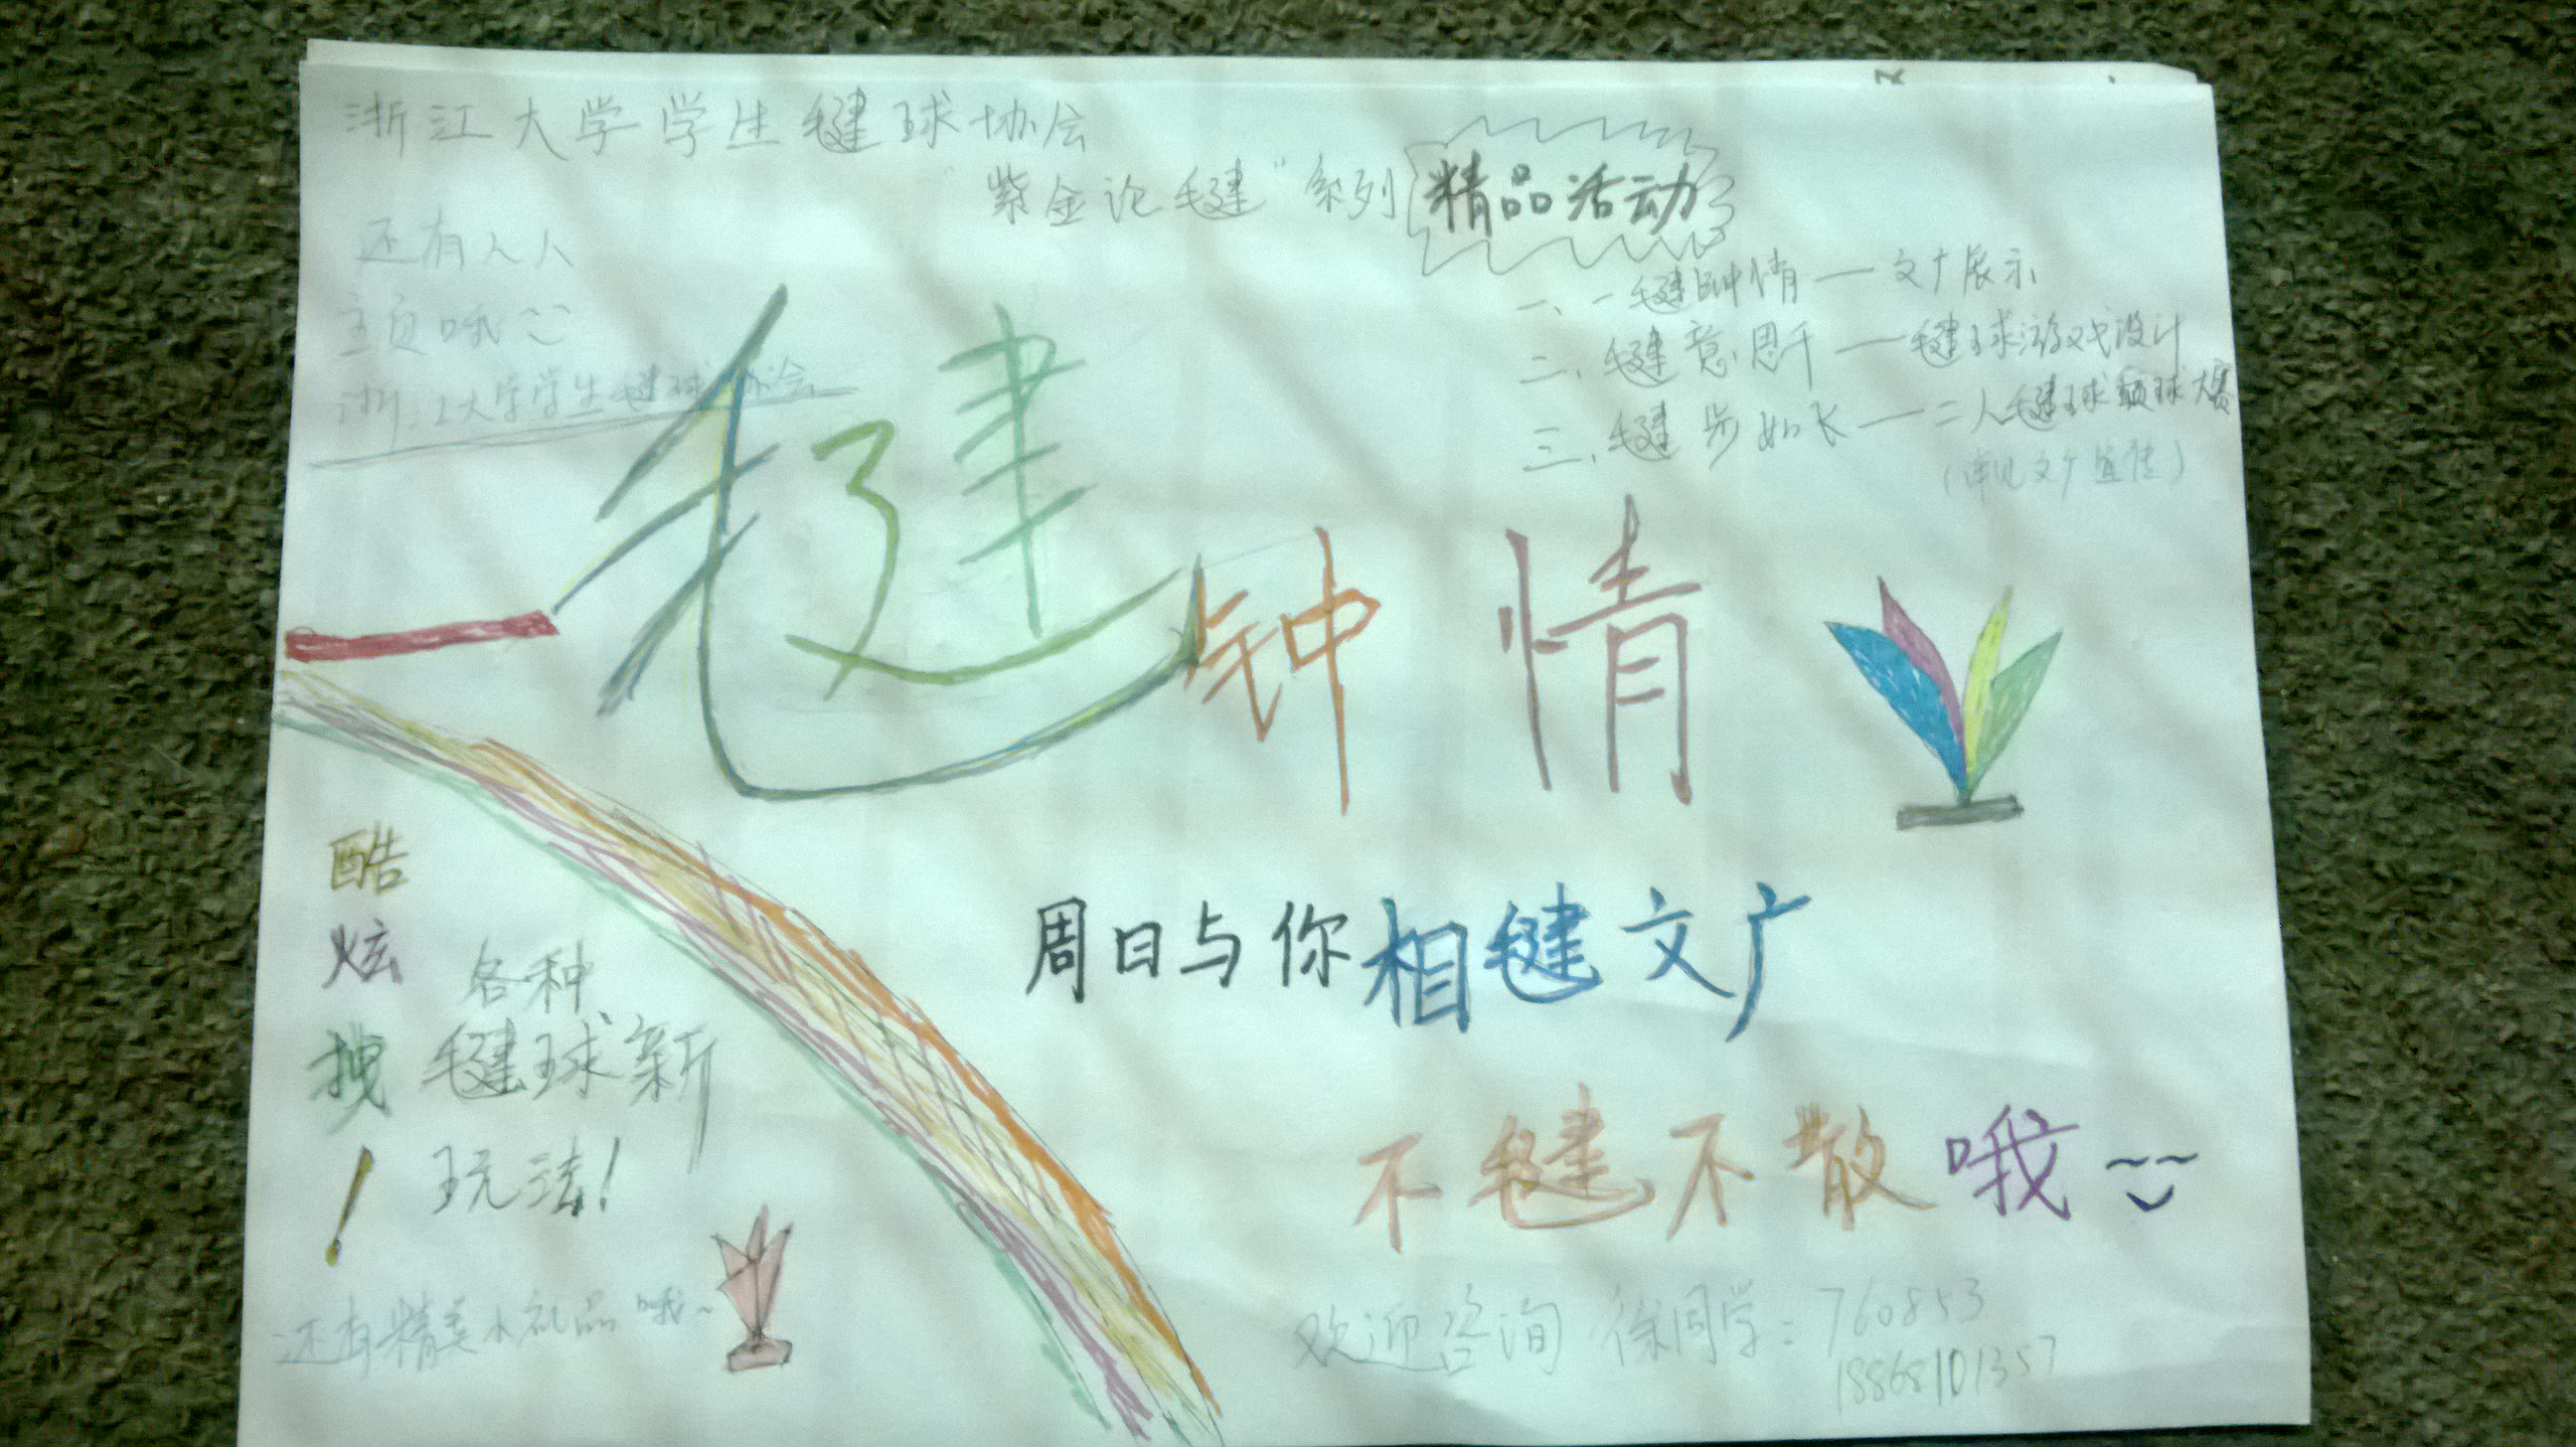 浙江大学学生毽球协会
“紫金论毽”系列 精品活动
还有人人
主页哦
浙江大学学生毽球协会
一、一毽钟情——文广展示
二、毽意思千——毽球游戏设计
三、毽步如长——二人毽球颠球大赛
(详见文广宣传)
一毽钟情
周日与你相毽文广
不毽不散哦~~
酷炫拽!
各种
毽球新
玩法!
还有精美小礼品哦~
欢迎咨询 徐同学:760853
18868101357